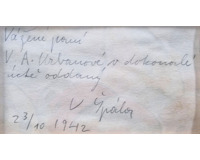 Vážené paní
V. A. Urbanové v dokonalé
úctě oddaný
V Špála
23/10 1942